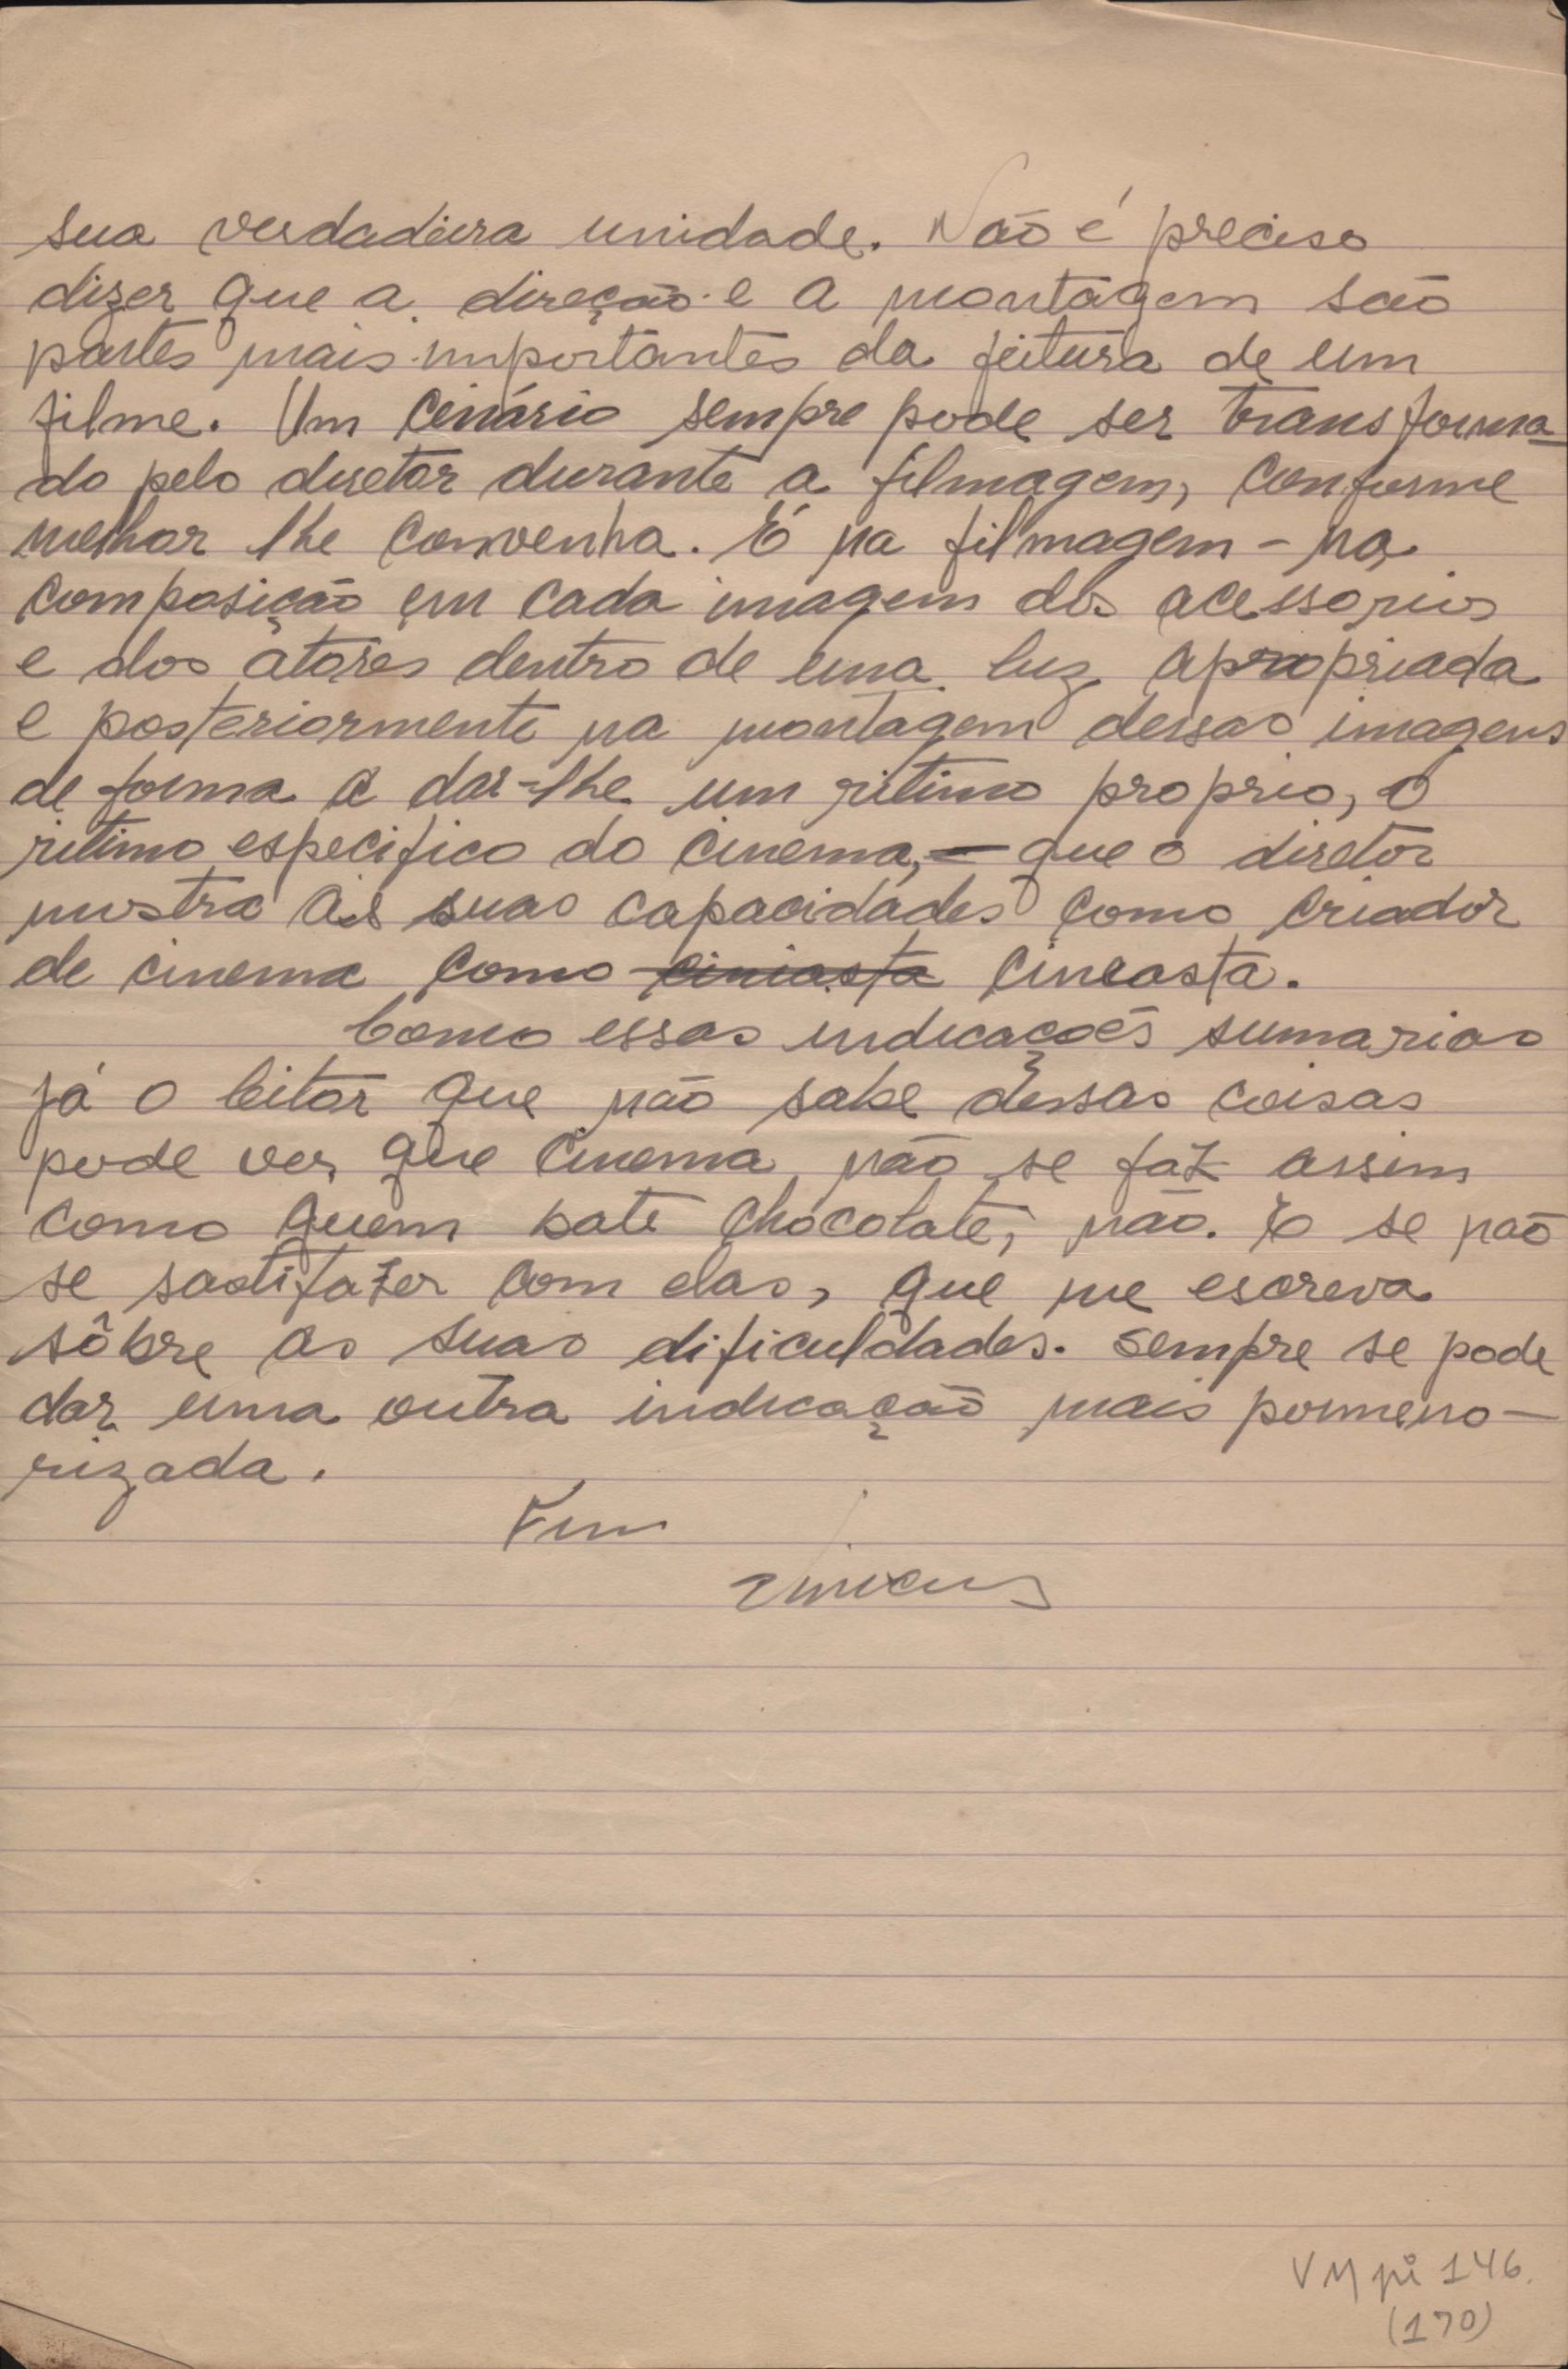 sua verdadeira unidade. Não é preciso
dizer que a direção e a montagem são
partes mais importantes da feitura de um
filme. Um cenário sempre pode ser transforma-
do pelo diretor durante a filmagem, conforme
melhor lhe convenha. É na filmagem - na
composição em cada imagem dos acessorios
e dos atores dentro de uma luz apropriada
e posteriormente na montagem dessas imagens
de forma a dar-lhe um ritimo proprio, o
ritimo especifico do cinema, - que o diretor
mostra as suas capacidades como criador
de cinema como ciniasta cineasta.
Como essas indicações sumarias
já o leitor que não sabe dessas coisas
pode ver que cinema não se faz assim
como quem bate chocolate, não. E se não
se sastifazer com elas, que me escreva
sôbre as suas dificuldades. Sempre se pode
dar uma outra indicação mais pormeno-
rizada.
Fim
Vinicius
VM pi 146.
(170)